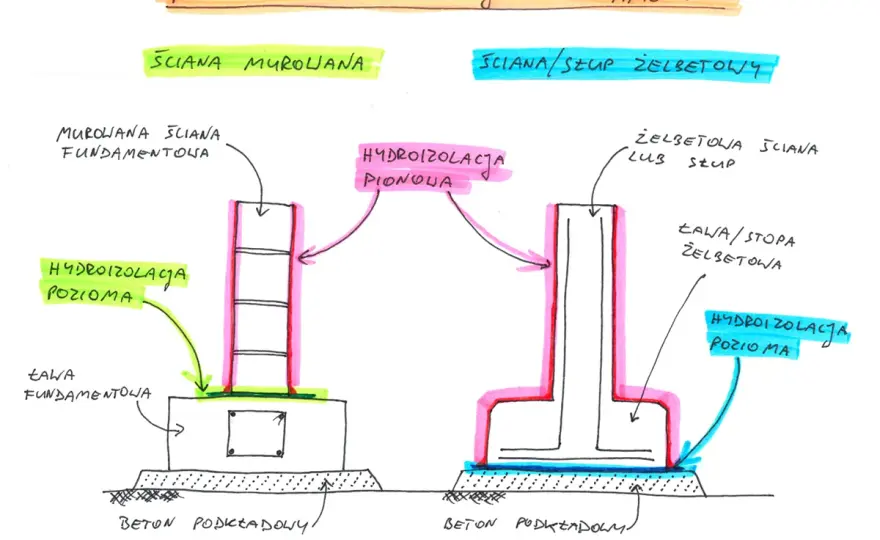 ŚCIANA MUROWANA
ŚCIANA/SŁUP ŻELBETOWY
MUROWANA ŚCIANA
FUNDAMENTOWA
HYDROIZOLACJA
PIONOWA
ŻELBETOWA ŚCIANA
LUB SŁUP
ŁAWA/STOPA
ŻELBETOWA
HYDROIZOLACJA
POZIOMA
HYDROIZOLACJA
POZIOMA
ŁAWA
FUNDAMENTOWA
BETON PODKŁADOWY
BETON PODKŁADOWY